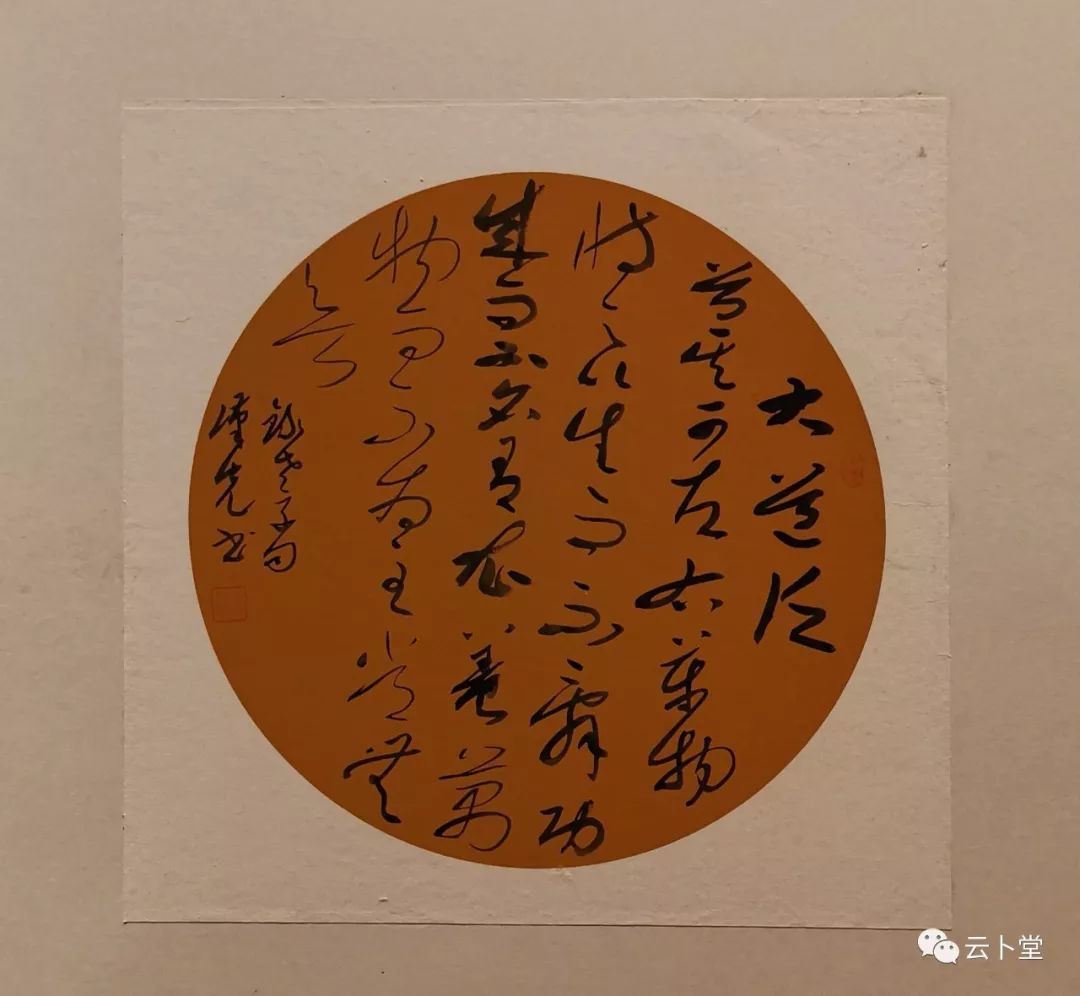 大道泛
兮其可左右萬物
恃之以生而不辭功
成而不名有衣養萬
物而不為主常無
欲
錄老子句
先书
云卜堂